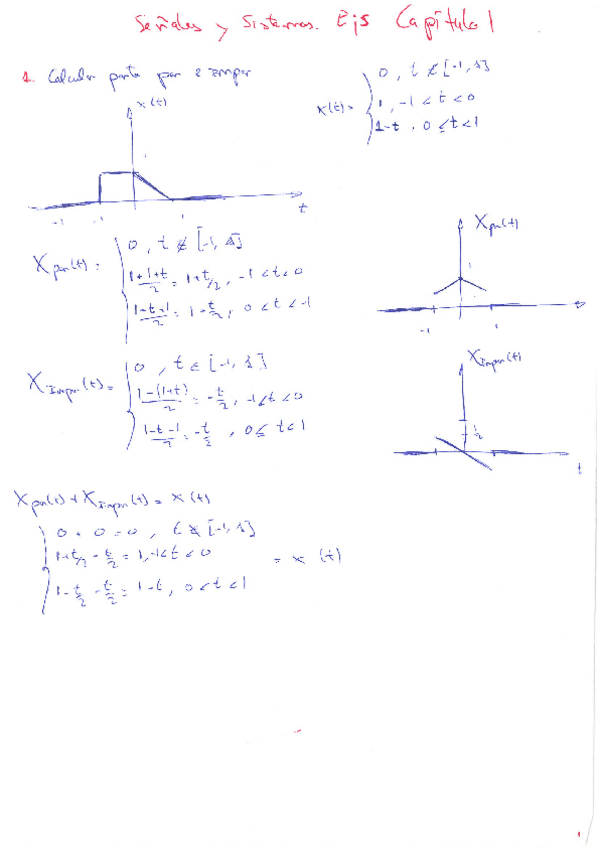 Señales y Sistemas. Ejs Capítulo 1
1. Calcular parte par e impar
x(t)
x(t)= { 0, t ∉ [-1, 1]
1, -1 < t < 0
1-t, 0 ≤ t < 1
-1 -1 1 t
Xpar(t) = { 0, t ∉ [-1, 1]
1+1+t/2 = 1+t/2, -1 < t < 0
1-t+1/2 = 1-t/2, 0 < t < -1
Xpar(t)
-1 1
Ximpar(t) = { 0, t ∈ [-1, 1]
1-(1+t)/2 = -t/2, -1 < t < 0
1-t-1/2 = -t/2, 0 ≤ t < 1
Ximpar(t)
1/2
t
Xpar(t) + Ximpar(t) = x(t)
{ 0 + 0 = 0, t ∉ [-1, 1]
1+t/2 - t/2 = 1, -1 < t < 0
= x(t)
1-t/2 - t/2 = 1-t, 0 < t < 1
1